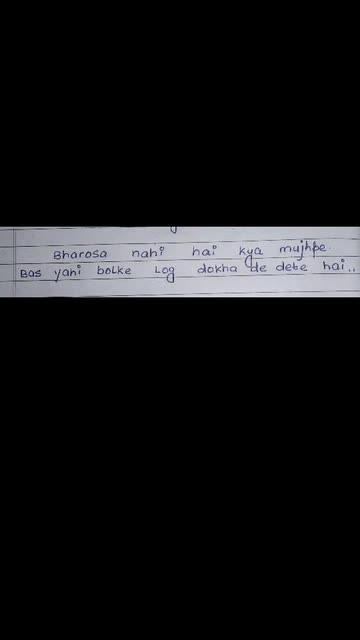 Bharosa nahi hai kya mujhpe.
Bas yahi bolke Log dokha de dete hai..